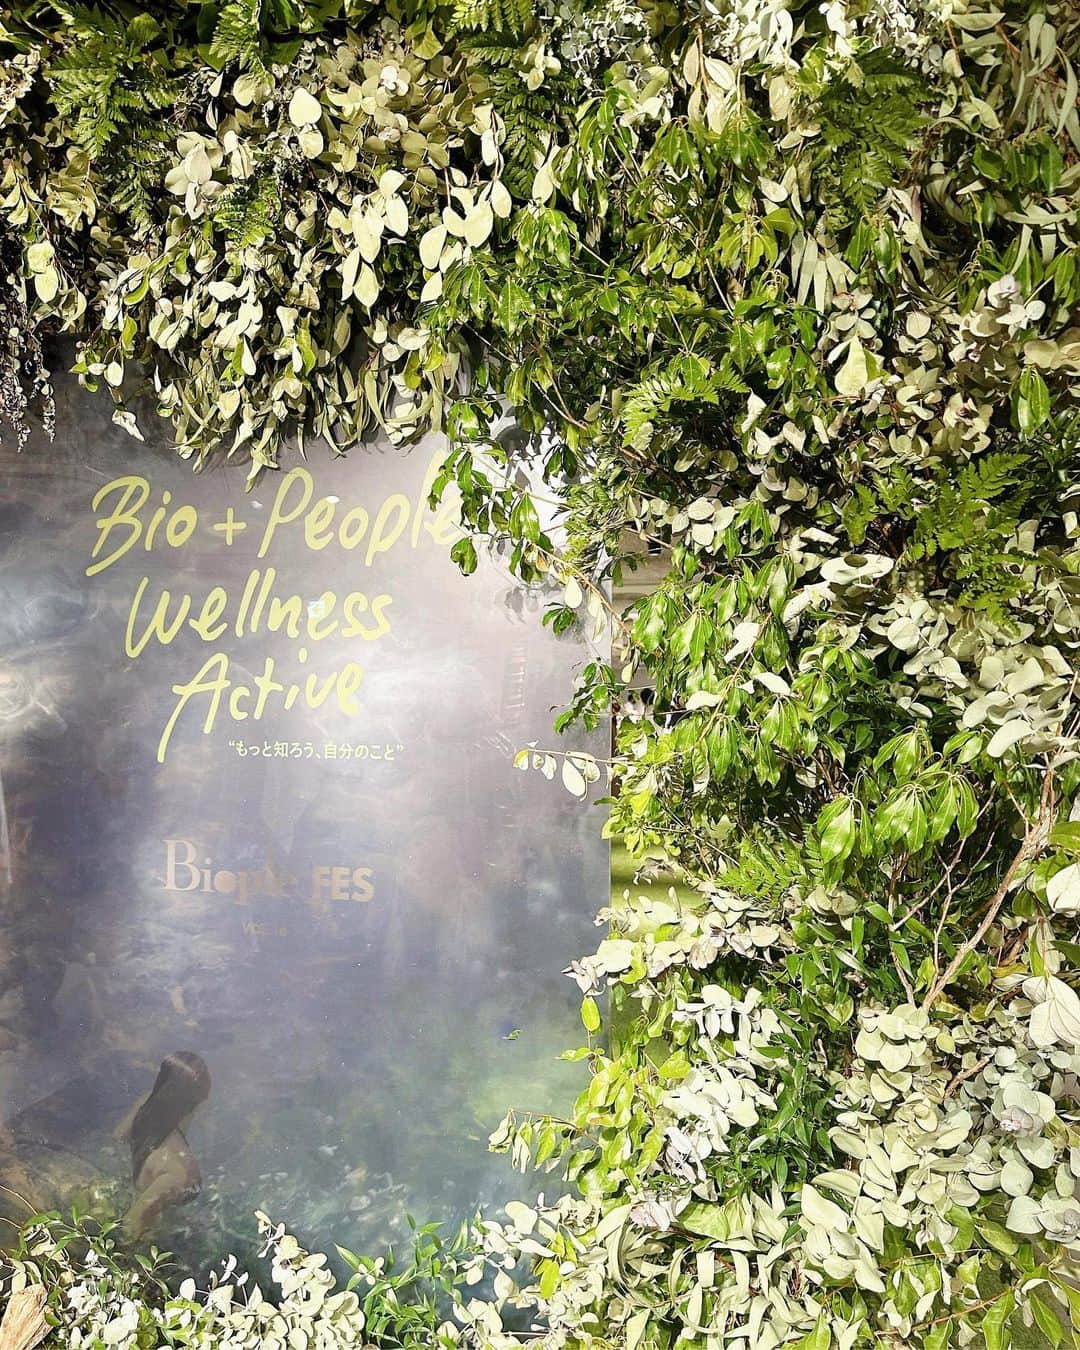 Bio + People
Wellness
Active
“もっと知ろう、自分のこと”
Biople FES